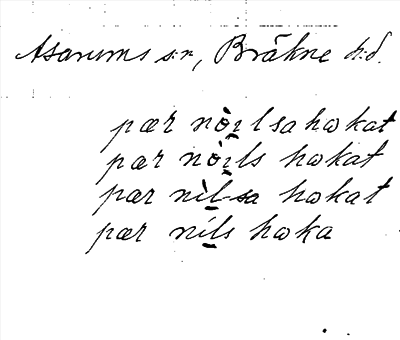 Asarums sn, Bräkne hd.
pær nòi̠lsa hωkat
pær nòi̠ls hωkat
pær nìl-sa hωkat
pær níls hωka